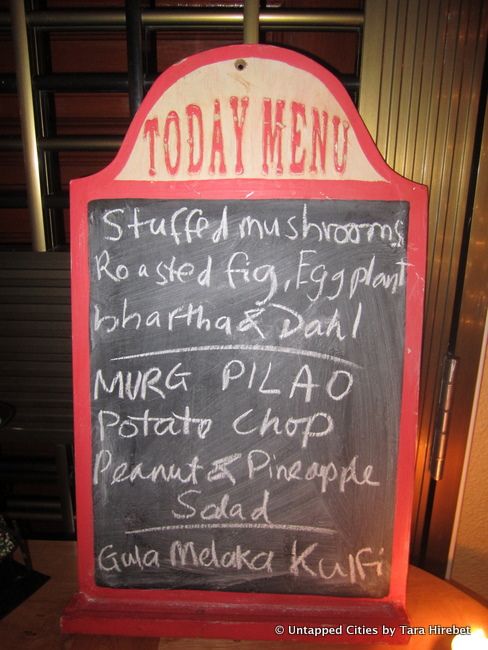 TODAY MENU
Stuffed mushrooms
Roasted fig, Eggplant
bhartha & Dahl
MURG PILAO
Potato Chop
Peanut & Pineapple
Salad
Gula Melaka Kulfi
© Untapped Cities by Tara Hirebet